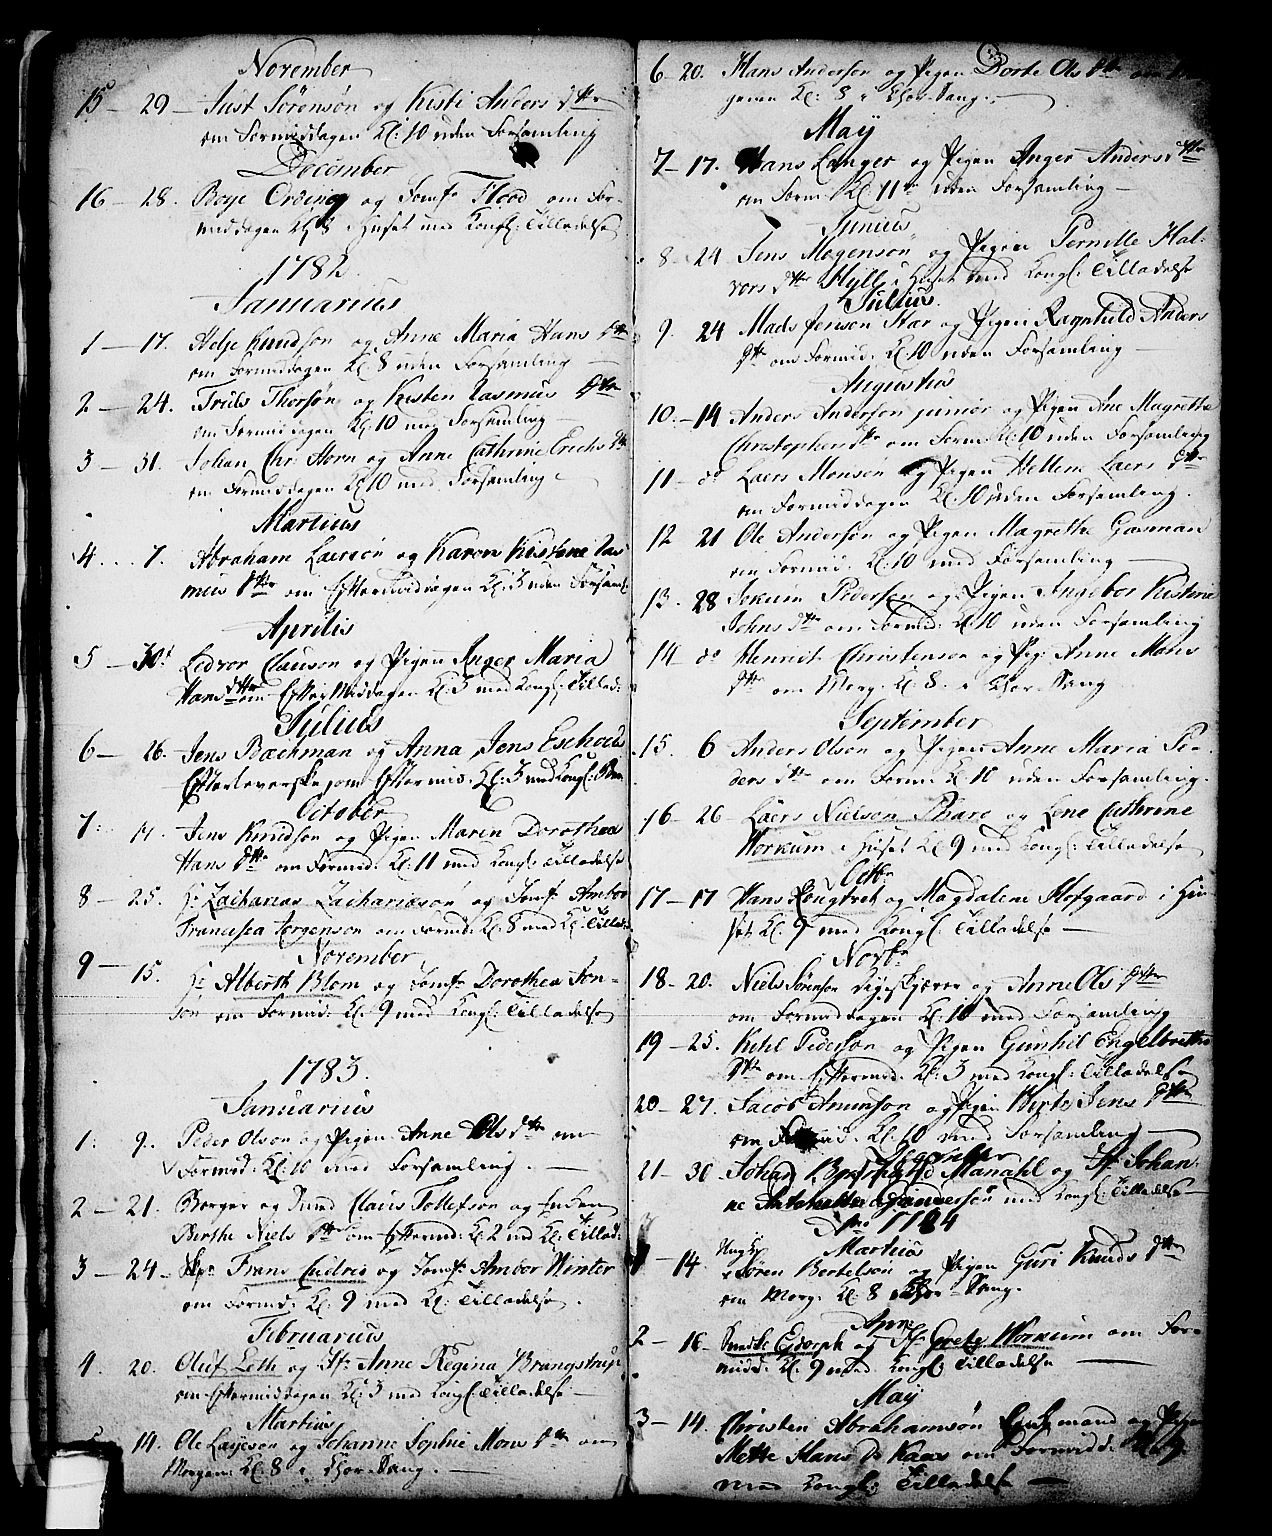 November
15 — 29 — Just Sørensøn og Kisti Anders dttr
om Formiddagen Kl: 10 uden Forsamling
December
16 — 28. Boye Ording og Jomfr Flood om For-
middagen Kl 8 i Huset med Kongl: Tilladelse
1782.
Januarius
1 — 17. Helje Knudsøn og Anne Maria Hans dttr
om Formiddagen Kl 8 uden Forsamling
2 — 24. Truls Thorsøn og Kirsten Rasmus dttr
om Formiddagen Kl: 10 med Forsamling
3 — 31. Johan Chr: Horn og Anne Cathrine Erichs dttr
om Formiddagen Kl 10 med Forsamling
Martius
4 . . . 7. Abraham Laersøn og Karen Kistine Ras
mus dttr om Eftermiddagen Kl: 3 uden Forsaml:
Aprilis
5 — Ledvor Clausøn og Pigen Anger Maria
Hans dttr om EfterMiddagen Kl: 3 med Kongl: Tillad:
Julius
6 — 26. Jens Bachman og Anna Jens
Efterleverske, om Eftermid: Kl: 3 med Kongl:
October
7: 11. Jens Knudsøn og Pigen Maren Dorothea
Hans dttr om Formid: Kl: 11 med Kongl: Tilladelse
8 — 25. Hr Zacharias Zachariasøn og Jomf: Ambor
Francisca Jørgensøn om Formid: Kl: 8 med Kl: Tillad:
November
9 — 15. Hr Alberth Blom og Jomfr Dorothea Jon-
søn om Formid: Kl: 9 med Kongl: Tilladelse
1783.
Januarius
1: 9. Peder Olsøn og Pigen Anne Ols dttr om
Formid: Kl: 10 med Forsamling. —
2 — 21. Borger og Smed Claus Tollefsøn og Enken
Birthe Niels dttr om Eftermid: Kl 2 med Kl: Tillad:
3 — 24 — Frans Cudrio og Jomfr Ambor Winter
om Formid: Kl: 9 med Kl: Tilladelse.
Februarius
4. 20. Oluf Leth og Jfr Anne Regina Brangstrup
om Eftermiddagen Kl: 3 med Kongl: Tilladelse —
Martius
14. Ole Lajesøn og Johanne Sophie Mons dttr om
Morgen: Kl: 8 i Chor-Sang. —
6 20. Hans Andersøn og Pigen Dorte Ols dttr om
genen Kl: 8 i Chor-Sang. —
May
7 — 17. Hans Langer og Pigen Anger Anders dttr
om Form: Kl: 11 uden Forsamling —
Junius
8. 24 Jens Mogensøn og Pigen Pernille Hal-
vors dttr Hylle i Huset med Kongl: Tilladelse
Julius.
9. 24 Mads Jensøn Star og Pigen Ragnhild Anders
dttr om Formid: Kl: 10 uden Forsamling —
Augustus
10. — 14 Anders Andersøn junior og Pigen Ane Magrethe
Christopher dttr om Form: Kl: 10 uden Forsamling
11 — do Laers Monsøn og Pigen Hellem Laers dttr
om Formiddagen Kl: 10 uden Forsamling.
12 21 Ole Andersøn og Pigen Magrethe Gasman
om Formid: Kl: 10 med Forsamling —
13. 28 Jokum Pedersøn og Pigen Ingebor Kistine
Johns dttr om Formid: Kl: 10 uden Forsamling
14 — do Henrich Christensøn og Pig: Anne Mons
dttr om Morg: Kl: 8. i Chor-Sang
September
15. 6 Anders Olsøn og Pigen Anne Maria Pe-
ders dttr om Formid: Kl 10 uden Forsamling.
16 — 26 — Laers Nielsøn Pharo og Lene Cathrine
Workum i Huset Kl 9 med Kongl: Tilladelse
Octbr
17 — 17 Hans Rougtvet og Magdalene Hofgaard i Hu-
set Kl: 9 med Kongl: Tilladelse —
Novbr
18 — 20. Niels Sørensøn og Anne Ols dttr
om Formiddagen Kl: 10 med Forsamling
19 — 25. Ketil Pedersøn og Pigen Gunhil Engelbreths
dttr om Eftermid: Kl: 3 med Kongl: Tilladelse
20 — 27. Jacob Amunsøn og Pigen Birte Jens dttr
om Formid: Kl: 10 med Forsamling —
December
21 — 30 Johan Manahl og Jfr: Johan-
ne med Kongl: Tilladelse —
Ao 1784
Martius
1 — 14. Ungk: Søren Bertelsøn og Pigen Guri Knuds dttr
om Morg: Kl: 8 Chor-Sang.
2 — 16. Eydorph og Jfr Grete Workum om For-
midd: Kl: 9 med Kongl: Tilladelse —
May
3 — 14. Christen Abrahamsøn Enkemand og Pigen
Mette Hans Dr Kaas om Formidd:
med Kongl: Tilladelse —